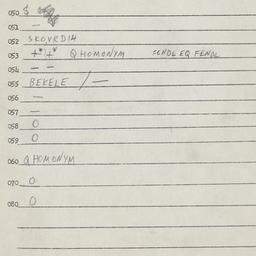 050 $
051 —
052 SKOVRDIH
053 +* + * Q HOMONYM SCHDL EQ FENDL
054 — —
055 BEKELE / —
056 —
057 —
058 0
059 0
060 Q HOMONYM
070 0
080 0